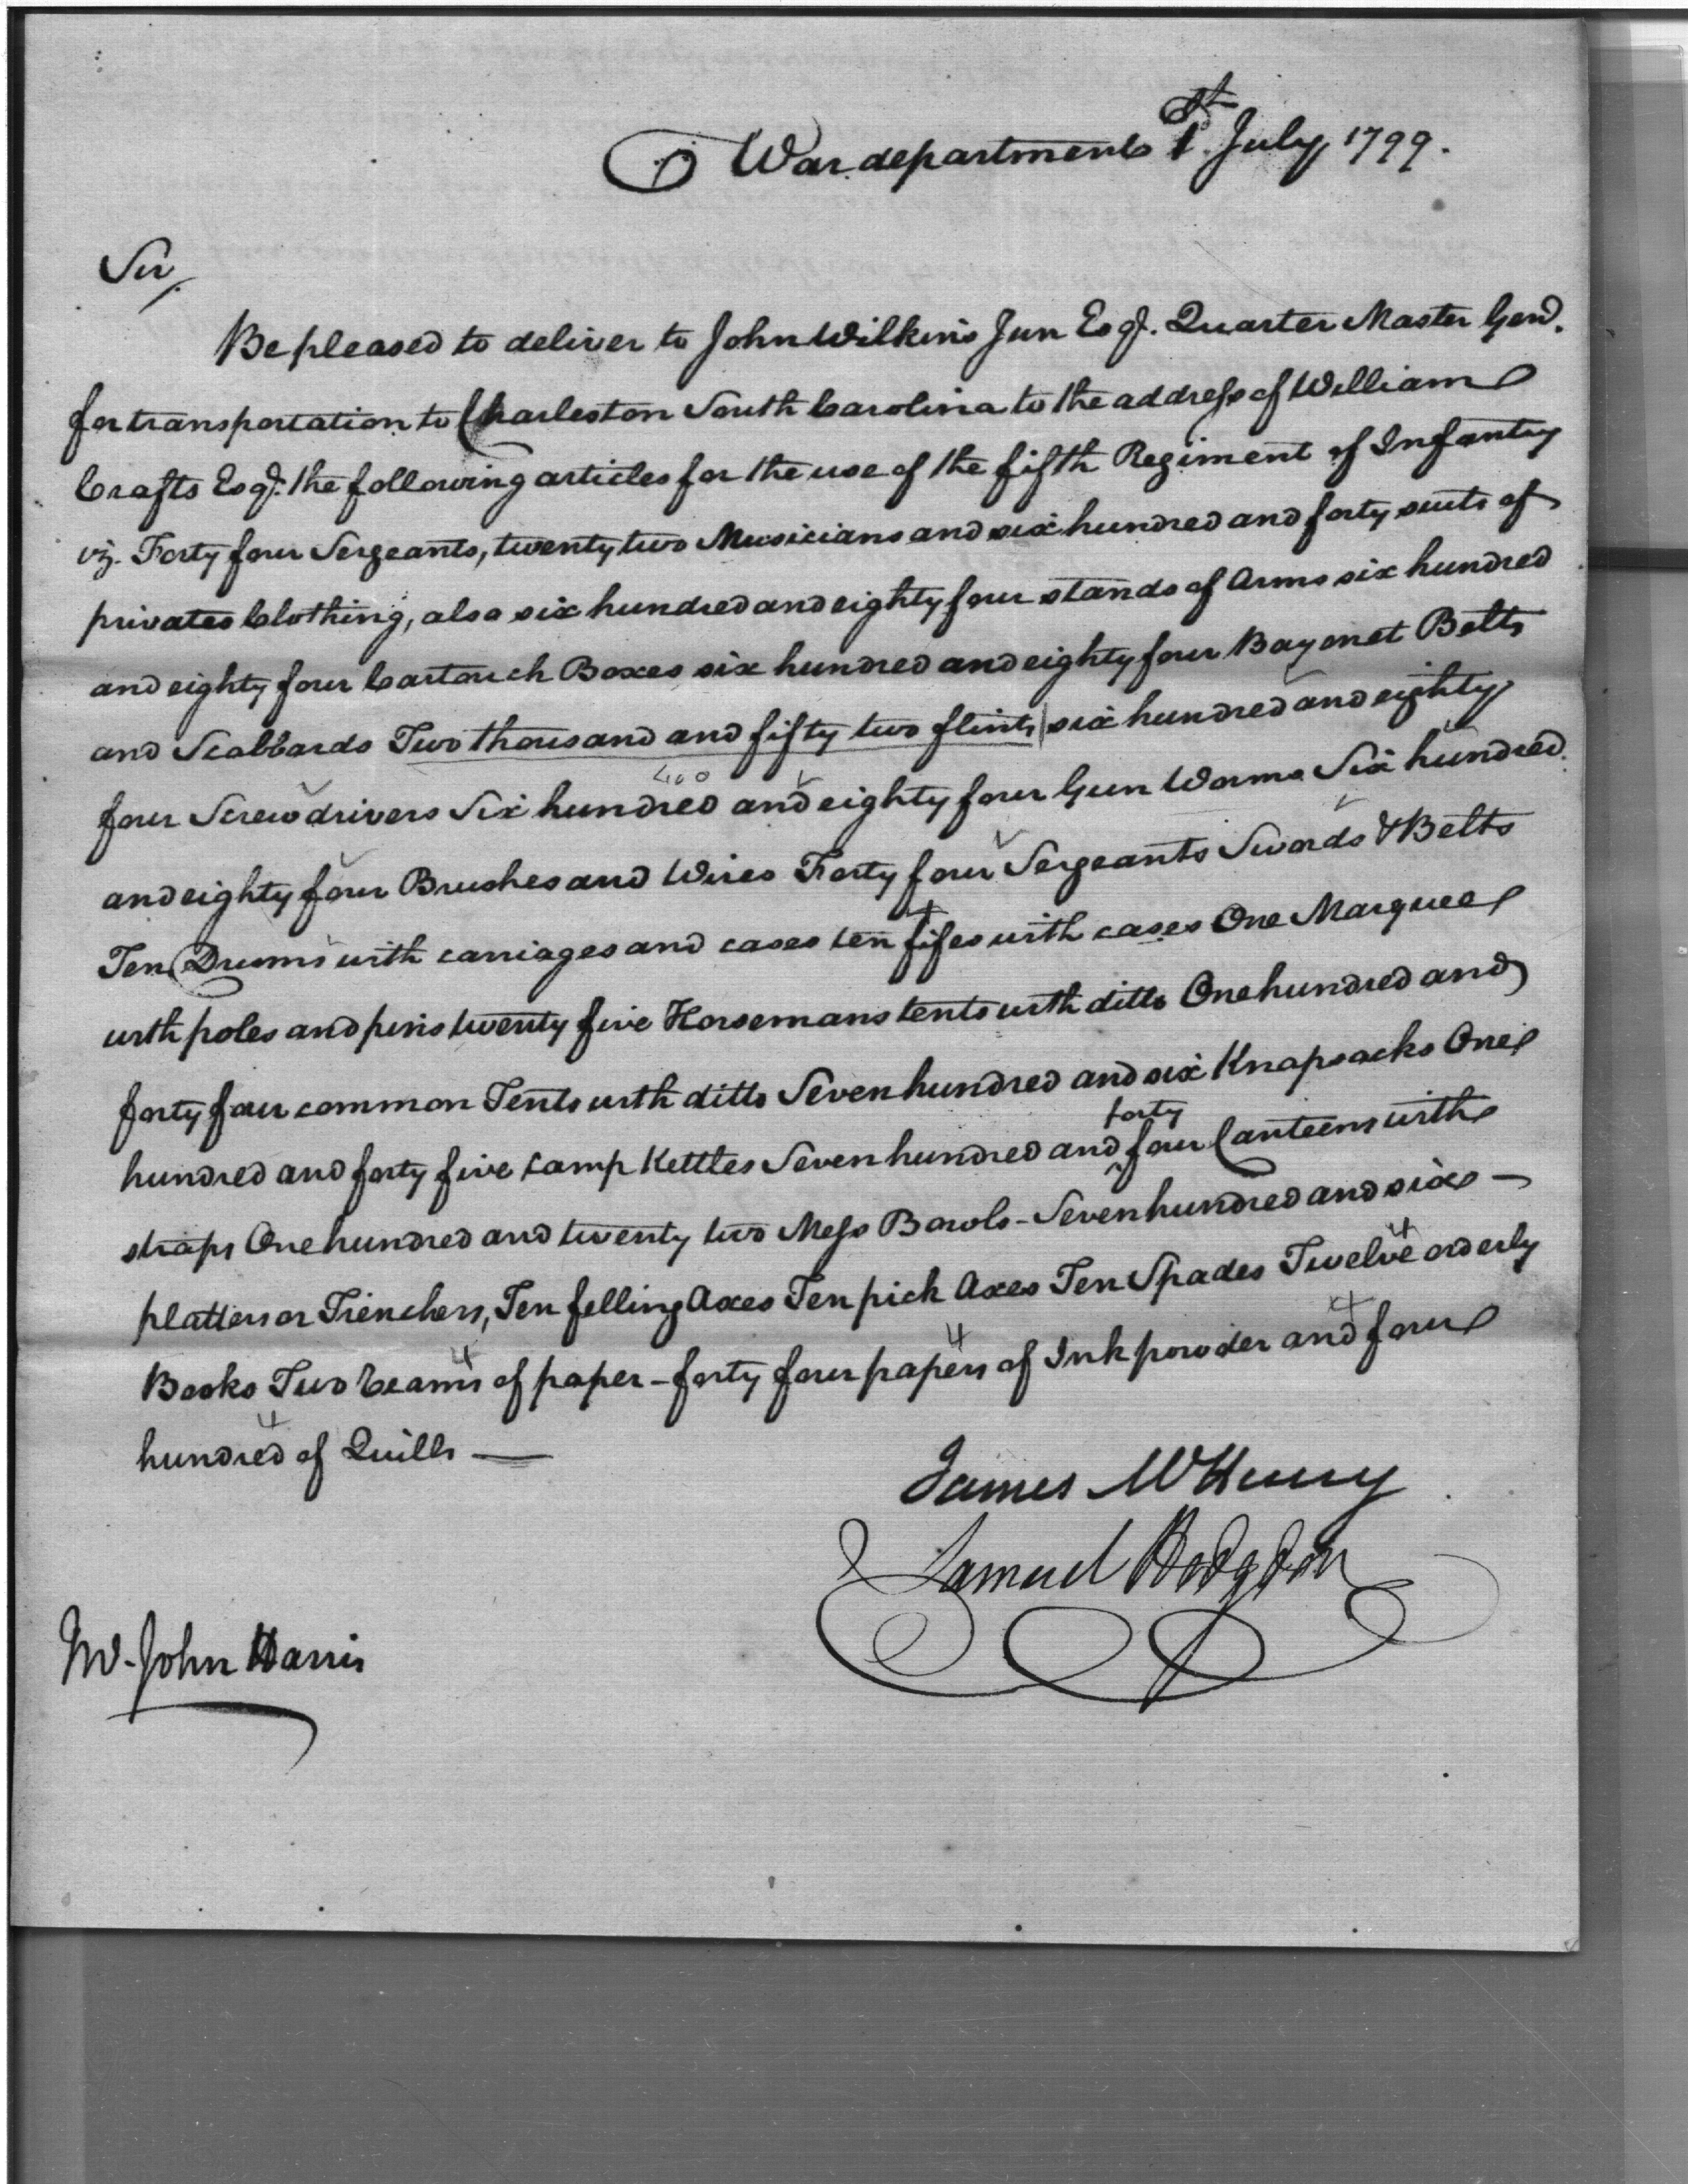 War department 1st July 1799.
Sir,
Be pleased to deliver to John Wilkins Jun Esqr. Quarter Master Genl.
for transportation to Charleston South Carolina to the address of William
Crafts Esqr. the following articles for the use of the fifth Regiment of Infantry
viz. Forty four Sergeants, twenty two Musicians and six hundred and forty suits of
privates Clothing, also six hundred and eighty four stands of Arms six hundred
and eighty four Cartouch Boxes six hundred and eighty four Bayonet Belts
and Scabbards Two thousand and fifty two flints six hundred and eighty
400
four Screwdrivers Six hundred and eighty four Gun Worms Six hundred
and eighty four Brushes and Wires Forty four Sergeants Swords & Belts
Ten Drums with carriages and cases ten fifes with cases One Marquee
with poles and pins twenty five Horsemans tents with ditto One hundred and
forty four common Tents with ditto Seven hundred and six Knapsacks One
forty
hundred and forty five Camp Kettles Seven hundred and four Canteens with
straps One hundred and twenty two Mess Bowls - Seven hundred and six -
platters or Trenchers, Ten felling Axes Ten pick Axes Ten Spades Twelve orderly
Books Two reams of paper - forty four papers of Ink powder and four
hundred of Quills —
James McHenry
Samuel Hodgdon
Mr. John Harris